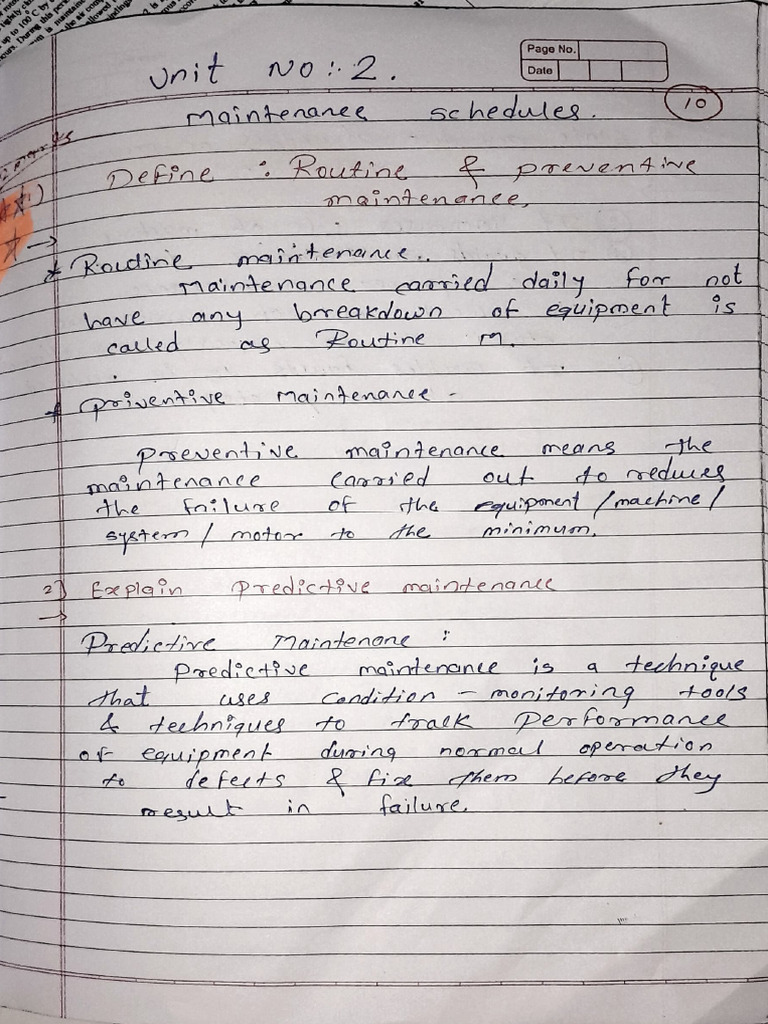 Unit No :- 2.
Page No.
Date
10
Maintenance schedules.
1) Define : Routine & preventive
maintenance,
→
* Routine maintenance..
Maintenance carried daily for not
have any breakdown of equipment is
called as Routine m.
* Priventive Maintenance -
Preventive maintenance means the
maintenance carried out to reduces
the failure of the equipment / machine /
system / motor to the minimum.
2) Explain Predictive maintenance
→
Predictive Maintenane :
Predictive maintenance is a technique
that uses condition - monitoring tools
& techniques to track Performance
of equipment during normal operation
to defects & fix them before they
result in failure.